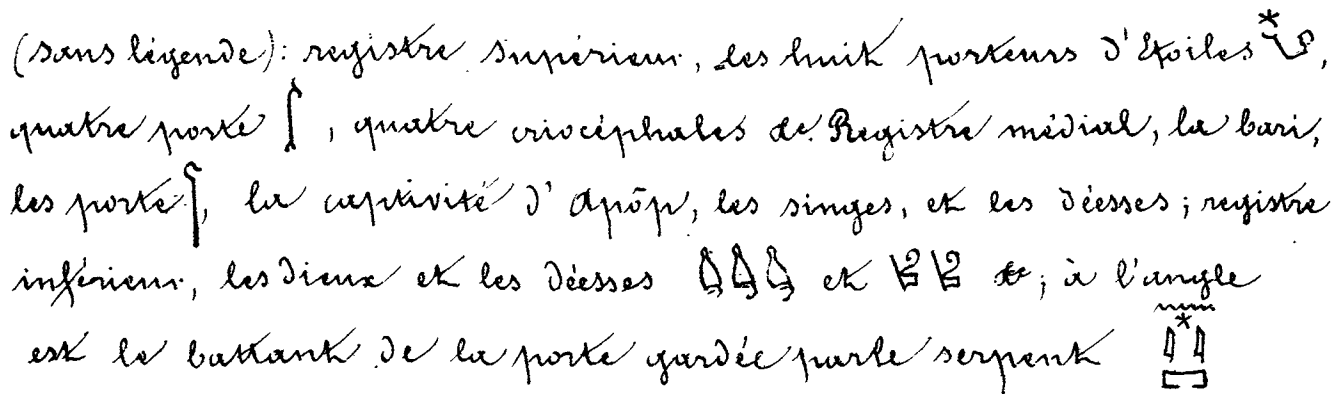 (sans légende): registre supérieur, les huit porteurs d'Etoiles 𓇼,
quatre porte 𓋾, quatre criocéphales &c. Registre médial, la bari,
les porte 𓋾, la captivité d'Apōp, les singes, et les déesses; registre
inférieur, les dieux et les déesses et &c; à l'angle
est le battant de la porte gardée par le serpent